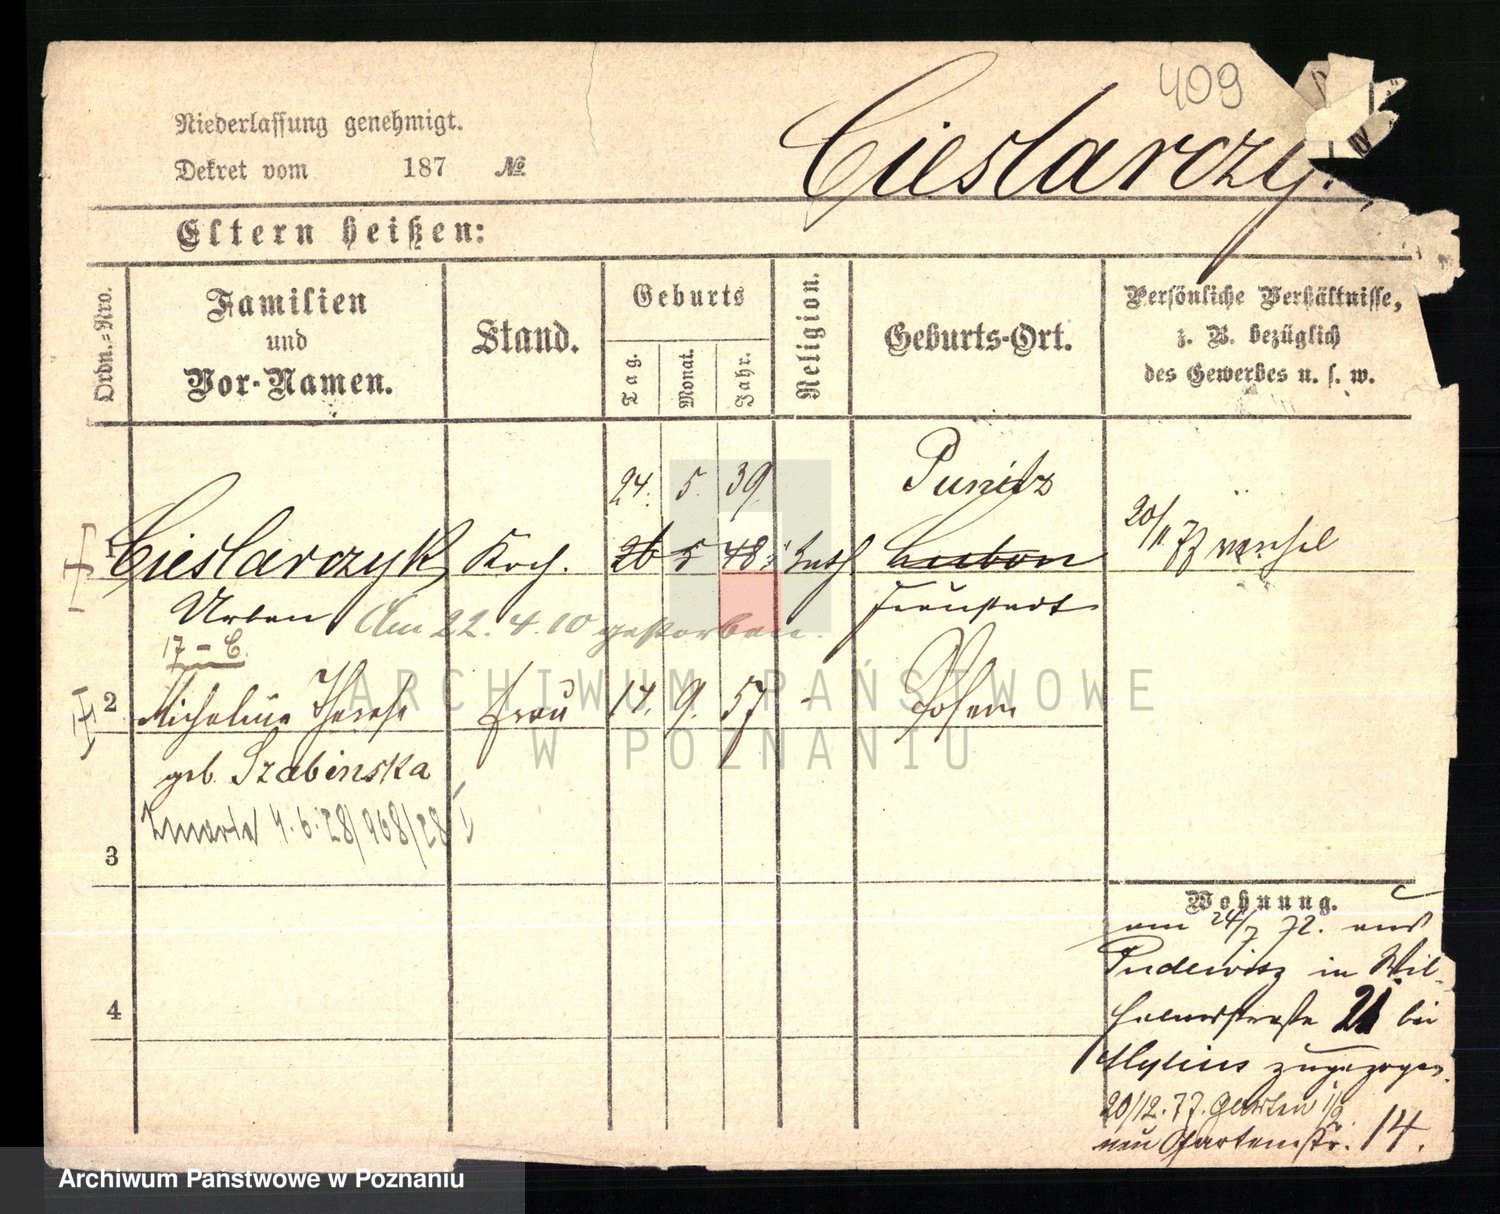 409
Niederlassung genehmigt.
Dekret vom 187 №
Cieslarczy
Eltern heißen:
Ordn.-Nro.
Familien
und
Vor-Namen.
Stand.
Geburts
Tag.
Monat.
Jahr.
Religion.
Geburts-Ort.
Persönliche Verhältnisse,
z. B. bezüglich
des Gewerbes u. s. w.
24. 5. 39. Punitz
1 Cieslarczyk Koch. 26 5 48 kath Luben 20/11 77
Urban Fraustadt
Am 22.4.10 gestorben.
17 - C.
2 Michaline Therese Frau 17. 9. 57 - Posen
geb. Szabinska
zmarła 4.6.28/968/28
3
4
Wohnung.
am 24/7 72. aus
Pudewitz in Wil-
helmstraße 21 bei
Mylius zugezogen.
20/12.77. Garten 1/2
neu Gartenstr. 14.
ARCHIWUM PAŃSTWOWE
W POZNANIU
Archiwum Państwowe w Poznaniu